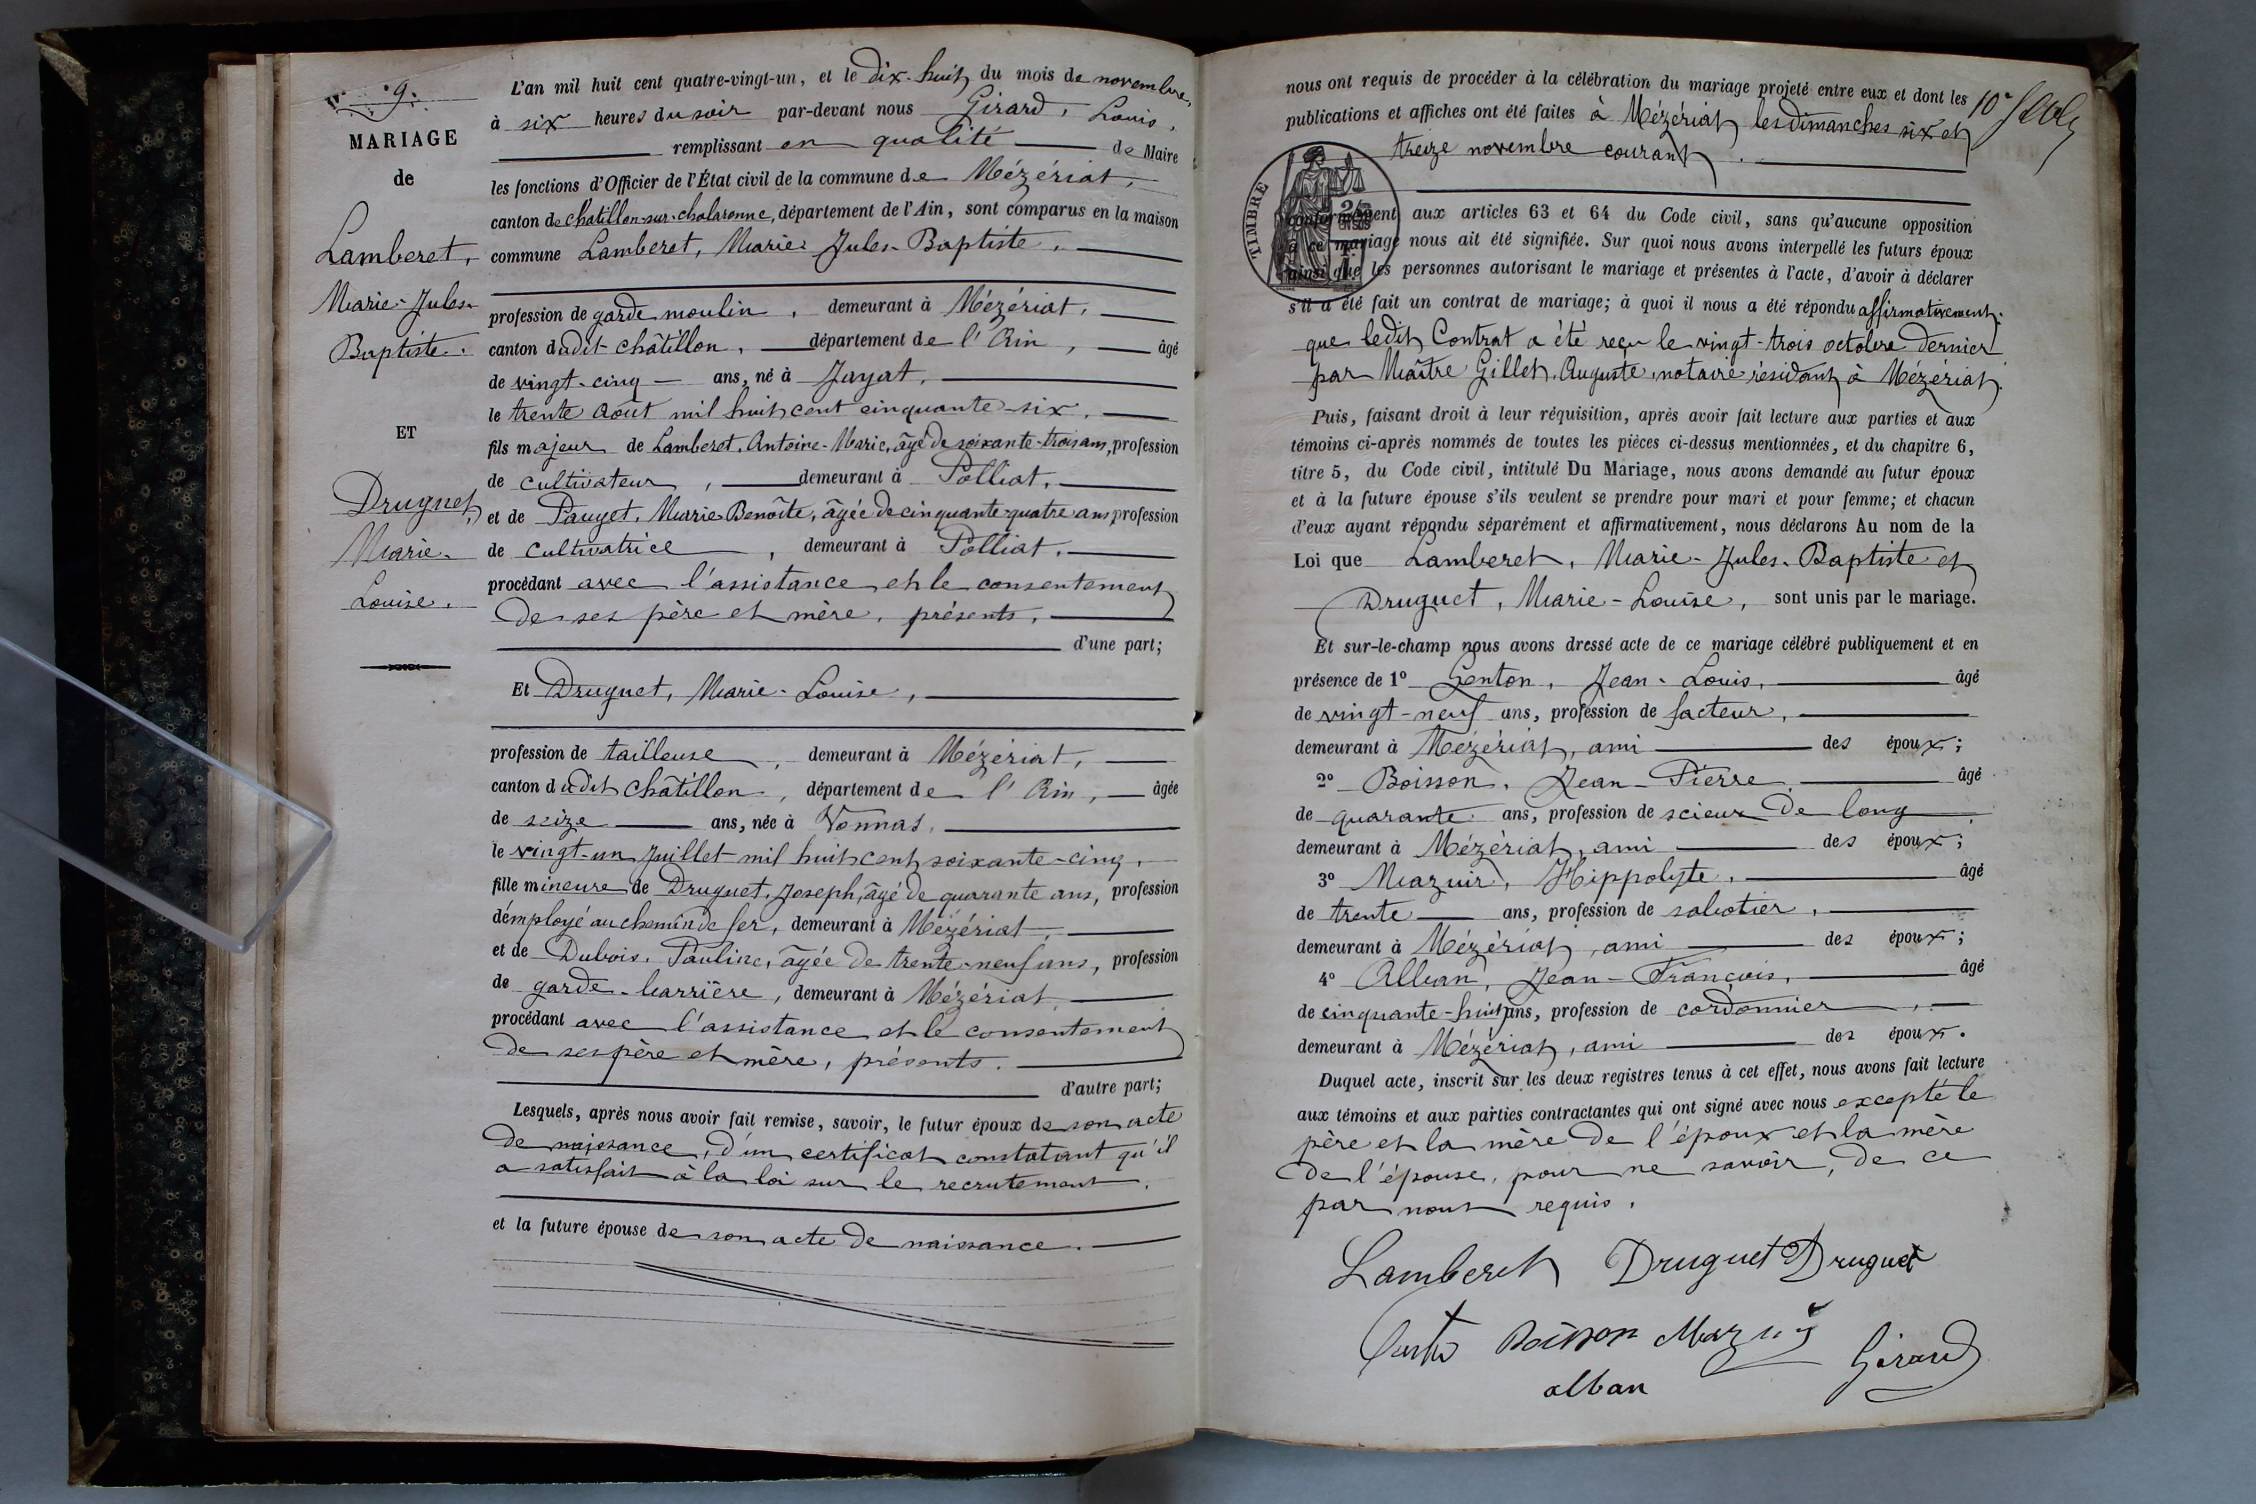 9.
MARIAGE
de
Lamberet,
Marie-Jules-
Baptiste.
ET
Druguet,
Marie-
Louise.
L'an mil huit cent quatre-vingt-un, et le dix-huit du mois de novembre,
à six heures du soir par-devant nous Girard, Louis,
remplissant en qualité de Maire
les fonctions d'Officier de l'État civil de la commune de Mézériat,
canton de Chatillon-sur-Chalaronne, département de l'Ain, sont comparus en la maison
commune Lamberet, Marie-Jules-Baptiste,
profession de garde moulin, demeurant à Mézériat,
canton dudit Châtillon, département de l'Ain, âgé
de vingt-cinq ans, né à Jayat,
le trente Août mil huit cent cinquante-six,
fils majeur de Lamberet, Antoine-Marie, âgé de soixante-trois ans, profession
de cultivateur, demeurant à Polliat,
et de Pauget, Marie Benoîte, âgée de cinquante-quatre ans profession
de cultivatrice, demeurant à Polliat,
procédant avec l'assistance et le consentement
de ses père et mère, présents,
d'une part;
Et Druguet, Marie-Louise,
profession de tailleuse, demeurant à Mézériat,
canton dudit Châtillon, département de l'Ain, âgée
de seize ans, née à Vonnas,
le vingt-un Juillet mil huit cent soixante-cinq,
fille mineure de Druguet, Joseph, âgé de quarante ans, profession
d'employé au chemin de fer, demeurant à Mézériat,
et de Dubois, Pauline, âgée de trente-neuf ans, profession
de garde-barrière, demeurant à Mézériat,
procédant avec l'assistance et le consentement
de ses père et mère, présents.
d'autre part;
Lesquels, après nous avoir fait remise, savoir, le futur époux de son acte
de naissance, d'un certificat constatant qu'il
a satisfait à la loi sur le recrutement,
et la future épouse de son acte de naissance.
nous ont requis de procéder à la célébration du mariage projeté entre eux et dont les
publications et affiches ont été faites à Mézériat les dimanches six et
treize novembre courant.
TIMBRE
conformément aux articles 63 et 64 du Code civil, sans qu'aucune opposition
à ce mariage nous ait été signifiée. Sur quoi nous avons interpellé les futurs époux
ainsi que les personnes autorisant le mariage et présentes à l'acte, d'avoir à déclarer
s'il a été fait un contrat de mariage; à quoi il nous a été répondu affirmativement.
que ledit Contrat a été reçu le vingt-trois octobre dernier
par Maître Gillet, Auguste, notaire résidant à Mézériat.
Puis, faisant droit à leur réquisition, après avoir fait lecture aux parties et aux
témoins ci-après nommés de toutes les pièces ci-dessus mentionnées, et du chapitre 6,
titre 5, du Code civil, intitulé Du Mariage, nous avons demandé au futur époux
et à la future épouse s'ils veulent se prendre pour mari et pour femme; et chacun
d'eux ayant répondu séparément et affirmativement, nous déclarons Au nom de la
Loi que Lamberet, Marie-Jules-Baptiste et
Druguet, Marie-Louise, sont unis par le mariage.
Et sur-le-champ nous avons dressé acte de ce mariage célébré publiquement et en
présence de 1° Genton, Jean-Louis, âgé
de vingt-neuf ans, profession de facteur,
demeurant à Mézériat, ami des époux;
2° Boisson, Jean-Pierre, âgé
de quarante ans, profession de scieur de long,
demeurant à Mézériat, ami des époux;
3° Mazuir, Hippolyte, âgé
de trente ans, profession de sabotier,
demeurant à Mézériat, ami des époux;
4° Alban, Jean-François, âgé
de cinquante-huit ans, profession de cordonnier,
demeurant à Mézériat, ami des époux.
Duquel acte, inscrit sur les deux registres tenus à cet effet, nous avons fait lecture
aux témoins et aux parties contractantes qui ont signé avec nous excepté le
père et la mère de l'époux et la mère
de l'épouse, pour ne savoir, de ce
par nous requis.
Lamberet Druguet Druguet
Boisson Mazuir
Girard
alban